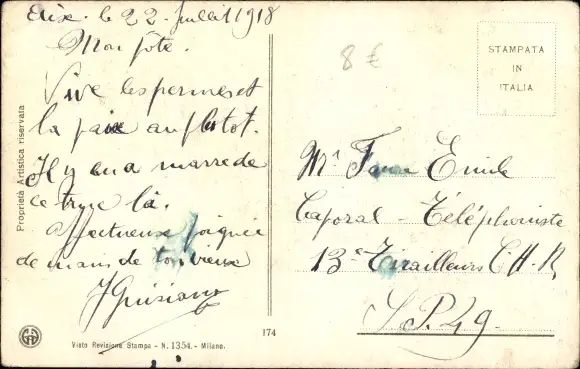 le 22 Juillet 1918
Mon pote.
Vive les permes et
la paix au plutot.
Il y en a marre de
ce truc là.
Affectueuse poignée
de mains de ton vieux
8 €
STAMPATA
IN
ITALIA
Mr Emile
Caporal - Téléphoniste
13e Tirailleurs C.H.R.
S.P. 49
Proprietà Artistica riservata
174
Visto Revisione Stampa - N. 1354. - Milano.